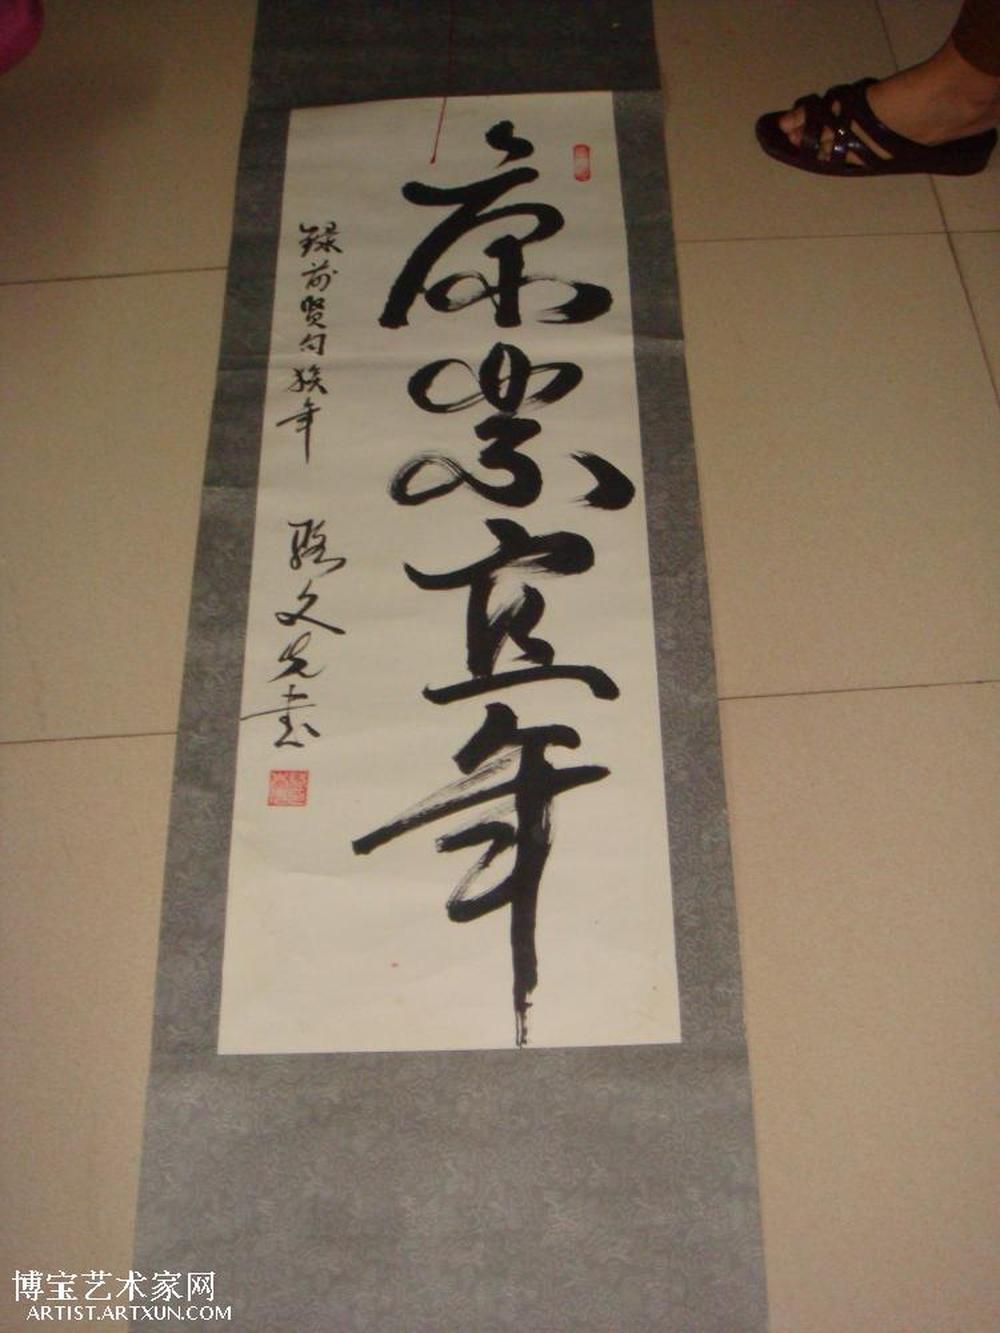 康乐宜年
録前贤句猴年
骆文先书
博宝艺术家网
ARTIST.ARTXUN.COM